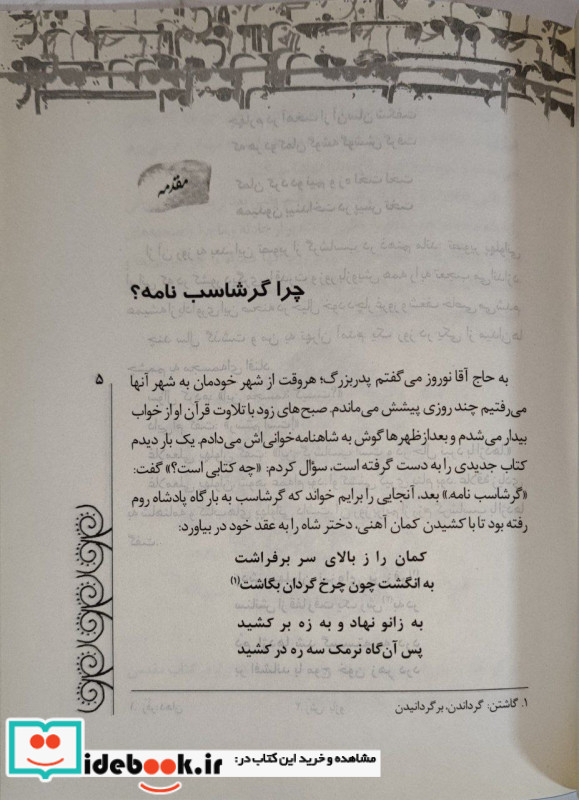 مقدمه
چرا گرشاسب نامه؟
۵
به حاج آقا نوروز می‌گفتم پدربزرگ؛ هروقت از شهر خودمان به شهر آنها
می‌رفتیم چند روزی پیشش می‌ماندم. صبح‌های زود با تلاوت قرآن او از خواب
بیدار می‌شدم و بعدازظهرها گوش به شاهنامه‌خوانی‌اش می‌دادم. یک بار دیدم
کتاب جدیدی را به دست گرفته است، سؤال کردم: «چه کتابی است؟» گفت:
«گرشاسب نامه.» بعد، آنجایی را برایم خواند که گرشاسب به بارگاه پادشاه روم
رفته بود تا با کشیدن کمان آهنی، دختر شاه را به عقد خود در بیاورد:
کمان را ز بالای سر برفراشت
به انگشت چون چرخ گردان بگاشت(۱)
به زانو نهاد و به زه بر کشید
پس آن‌گاه نرمک سه ره در کشید
۱. گاشتن: گرداندن، برگردانیدن
مشاهده و خرید این کتاب در:
idebook.ir